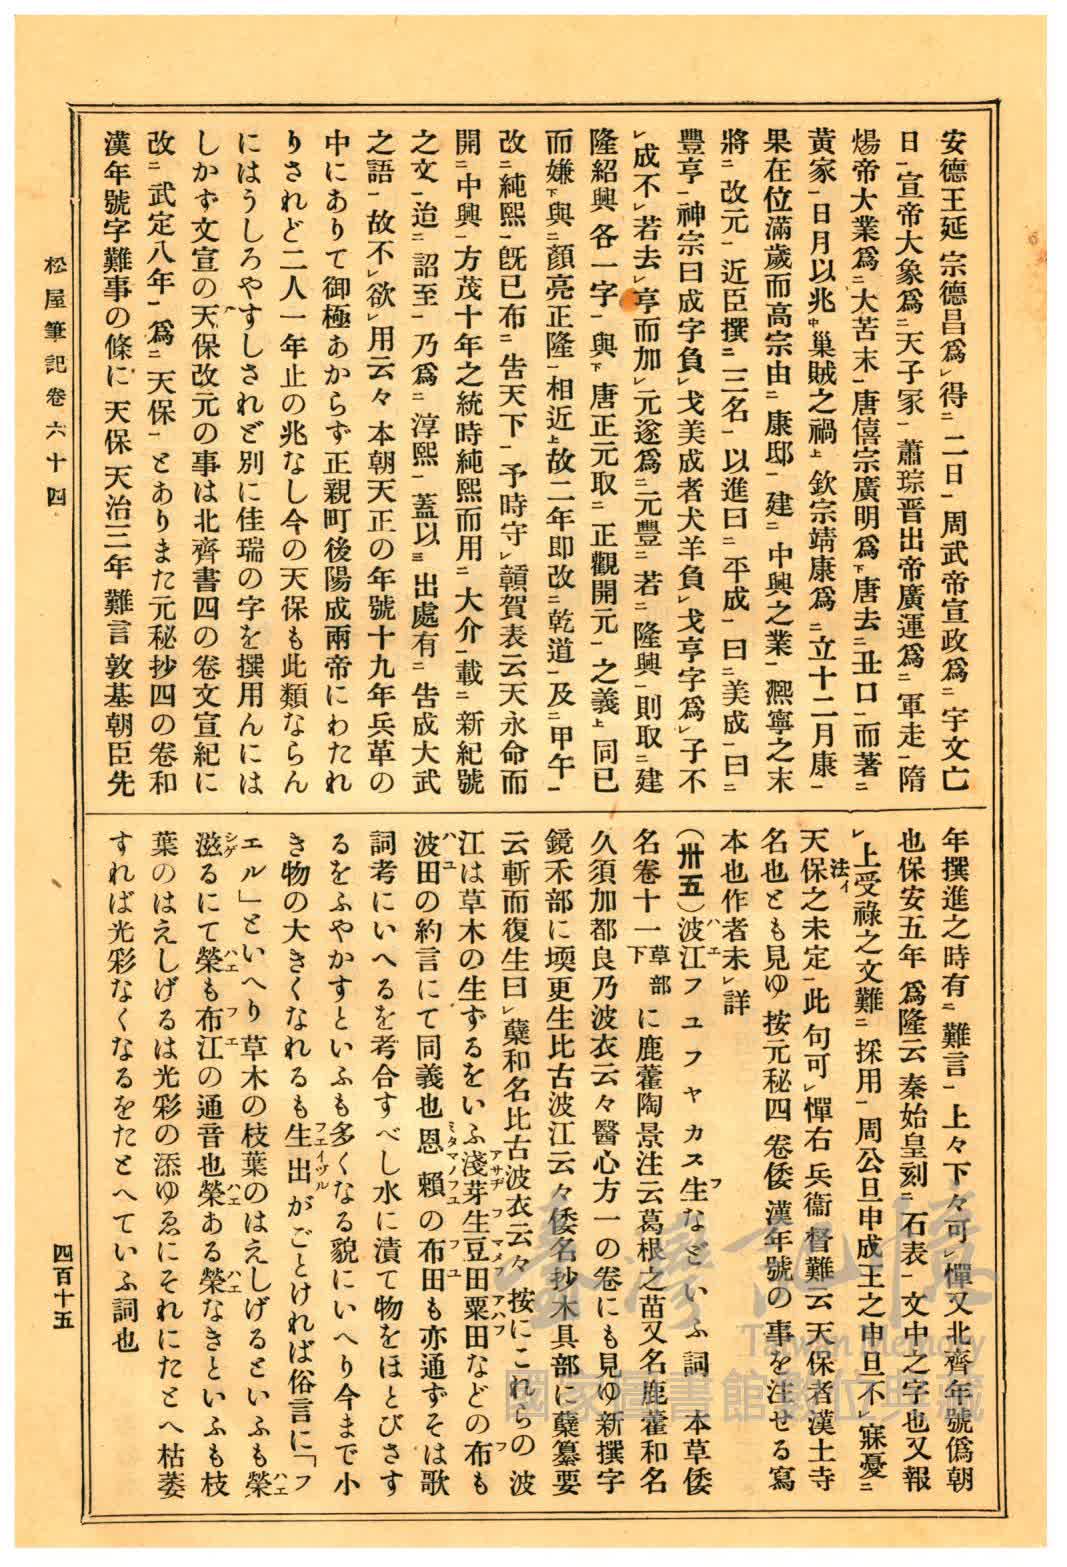 安德王延宗德昌爲㆑得㆓二日㆒周武帝宣政爲㆓宇文亡
日㆒宣帝大象爲㆓天子冢㆒蕭琮晋出帝廣運爲㆓軍走㆒隋
煬帝大業爲㆓大苦末㆒唐僖宗廣明爲㆘唐去㆓丑口㆒而著㆓
黃家㆒日月以兆㆗巢賊之禍㆖欽宗靖康爲㆓立十二月康㆒
果在位滿歲而高宗由㆓康邸㆒建㆓中興之業㆒熈寧之末
將㆓改元㆒近臣撰㆓三名㆒以進曰㆓平成㆒曰㆓美成㆒曰㆓
豐亨㆒神宗曰成字負㆑戈美成者犬羊負㆑戈亨字爲㆑子不
㆑成不㆑若去㆑亨而加㆑元遂爲㆓元豐㆒若㆓隆興㆒則取㆓建
隆紹興各一字㆒與㆘唐正元取㆓正觀開元㆒之義㆖同已
而嫌㆘與㆓顏亮正隆㆒相近㆖故二年即改㆓乾道㆒及㆓甲午㆒
改㆓純熙㆒既已布㆓告天下㆒予時守㆑贛賀表云天永命而
開㆓中興㆒方茂十年之統時純熙而用㆓大介㆒載㆓新紀號
之文㆒迨㆓詔至㆒乃爲㆓淳熙㆒蓋以㆔出處有㆓告成大武
之語㆒故不㆑欲㆑用云々本朝天正の年號十九年兵革の
中にありて御極あからず正親町後陽成兩帝にわたれ
りされど二人一年止の兆なし今の天保も此類ならん
にはうしろやすしされど別に佳瑞の字を撰用んには
しかず文宣の天保改元の事は北齊書四の卷文宣紀に
改㆓武定八年㆒爲㆓天保㆒とありまた元秘抄四の卷和
漢年號字難事の條に天保天治三年難言敦基朝臣先
年撰進之時有㆓難言㆒上々下々可㆑憚又北齊年號僞朝
也保安五年爲隆云秦始皇刻㆓石表㆒文中之字也又報
㆑上受祿之文難㆓採用㆒周公旦申成王之申旦不㆑寐憂㆓
天保之未定㆒此句可㆑憚右兵衞督難云天保者漢土寺
法イ
名也とも見ゆ按元秘四卷倭漢年號の事を注せる寫
本也作者未㆑詳
(卅五)波江フユフヤカス生などいふ詞 本草倭
名卷十一草部下に鹿藿陶景注云葛根之苗又名鹿藿和名
久須加都良乃波衣云々醫心方一の卷にも見ゆ新撰字
鏡禾部に堧更生比古波江云々倭名抄木具部に蘖纂要
云斬而復生曰㆑蘖和名比古波衣云々按にこれらの波
江は草木の生ずるをいふ淺芽生豆田粟田などの布も
波田の約言にて同義也恩賴の布田も亦通ずそは歌
詞考にいへるを考合すべし水に漬て物をほとびさす
るをふやかすといふも多くなる貌にいへり今まで小
き物の大きくなれるも生出がごとければ俗言に「フ
エル」といへり草木の枝葉のはえしげるといふも榮
滋るにて榮も布江の通音也榮ある榮なきといふも枝
葉のはえしげるは光彩の添ゆゑにそれにたとへ枯萎
すれば光彩なくなるをたとへていふ詞也
松屋筆記卷六十四
四百十五
臺灣記憶
Taiwan Memory
國家圖書館數位典藏